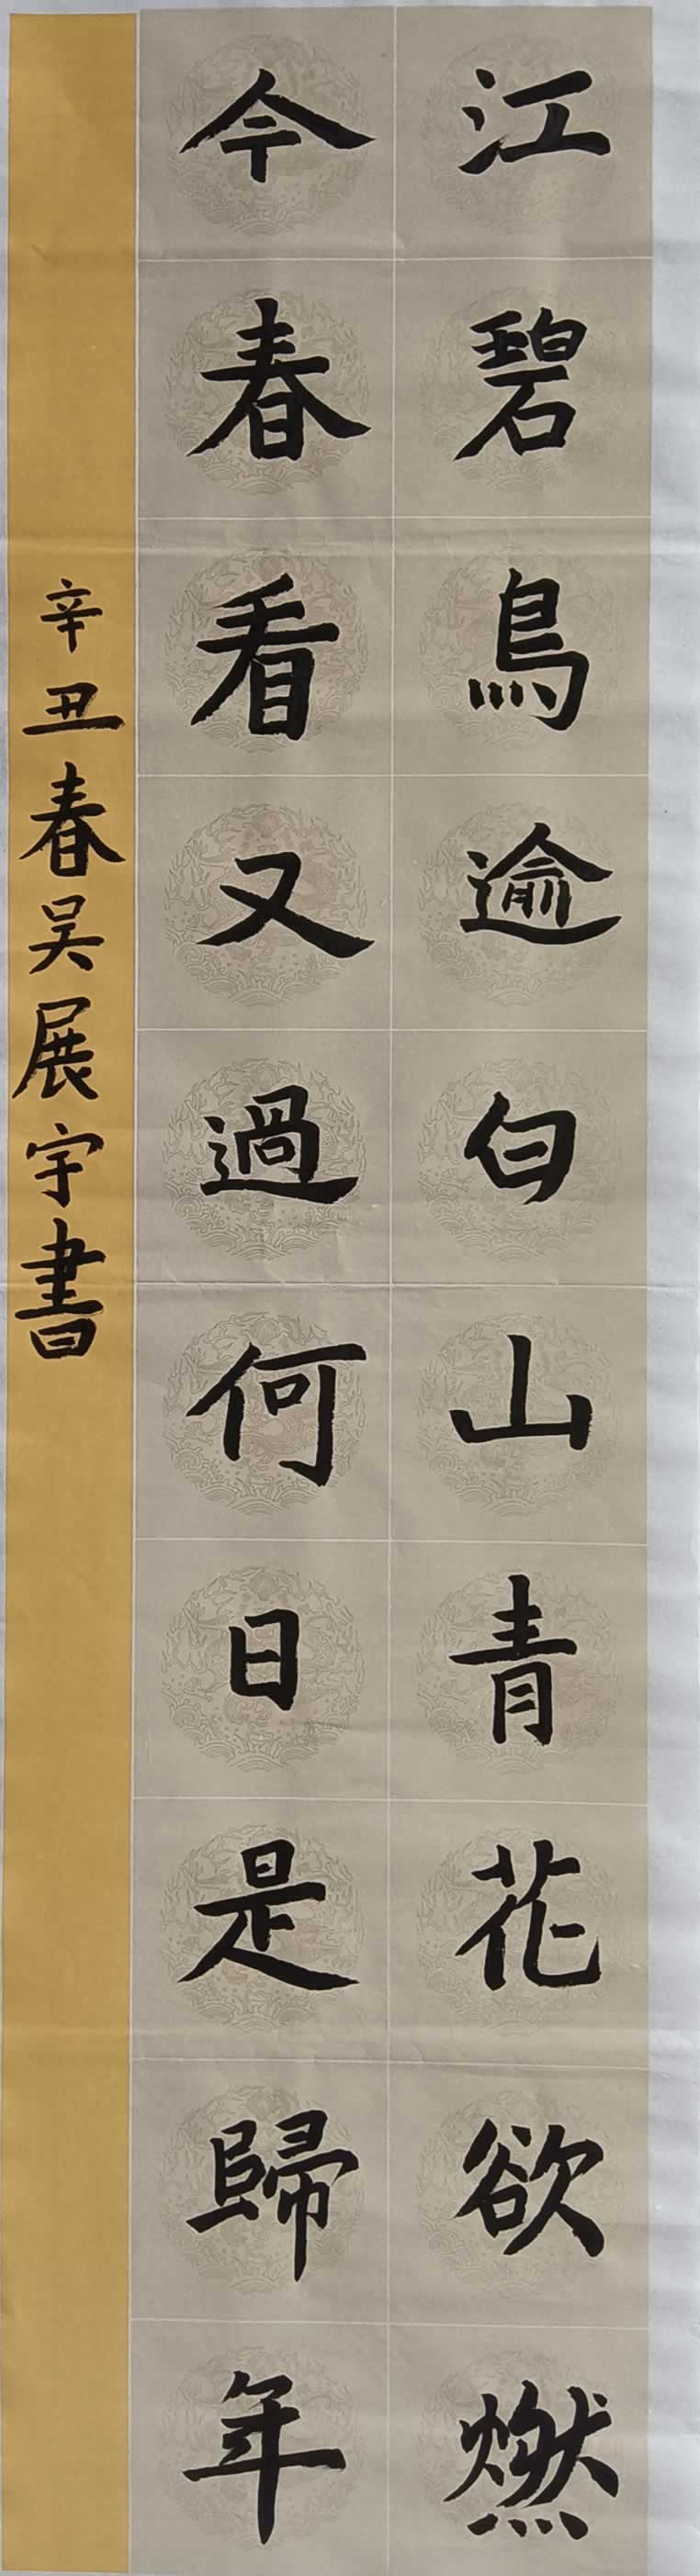 江碧鳥逾白山青花欲燃
今春看又過何日是歸年
辛丑春吴展宇書